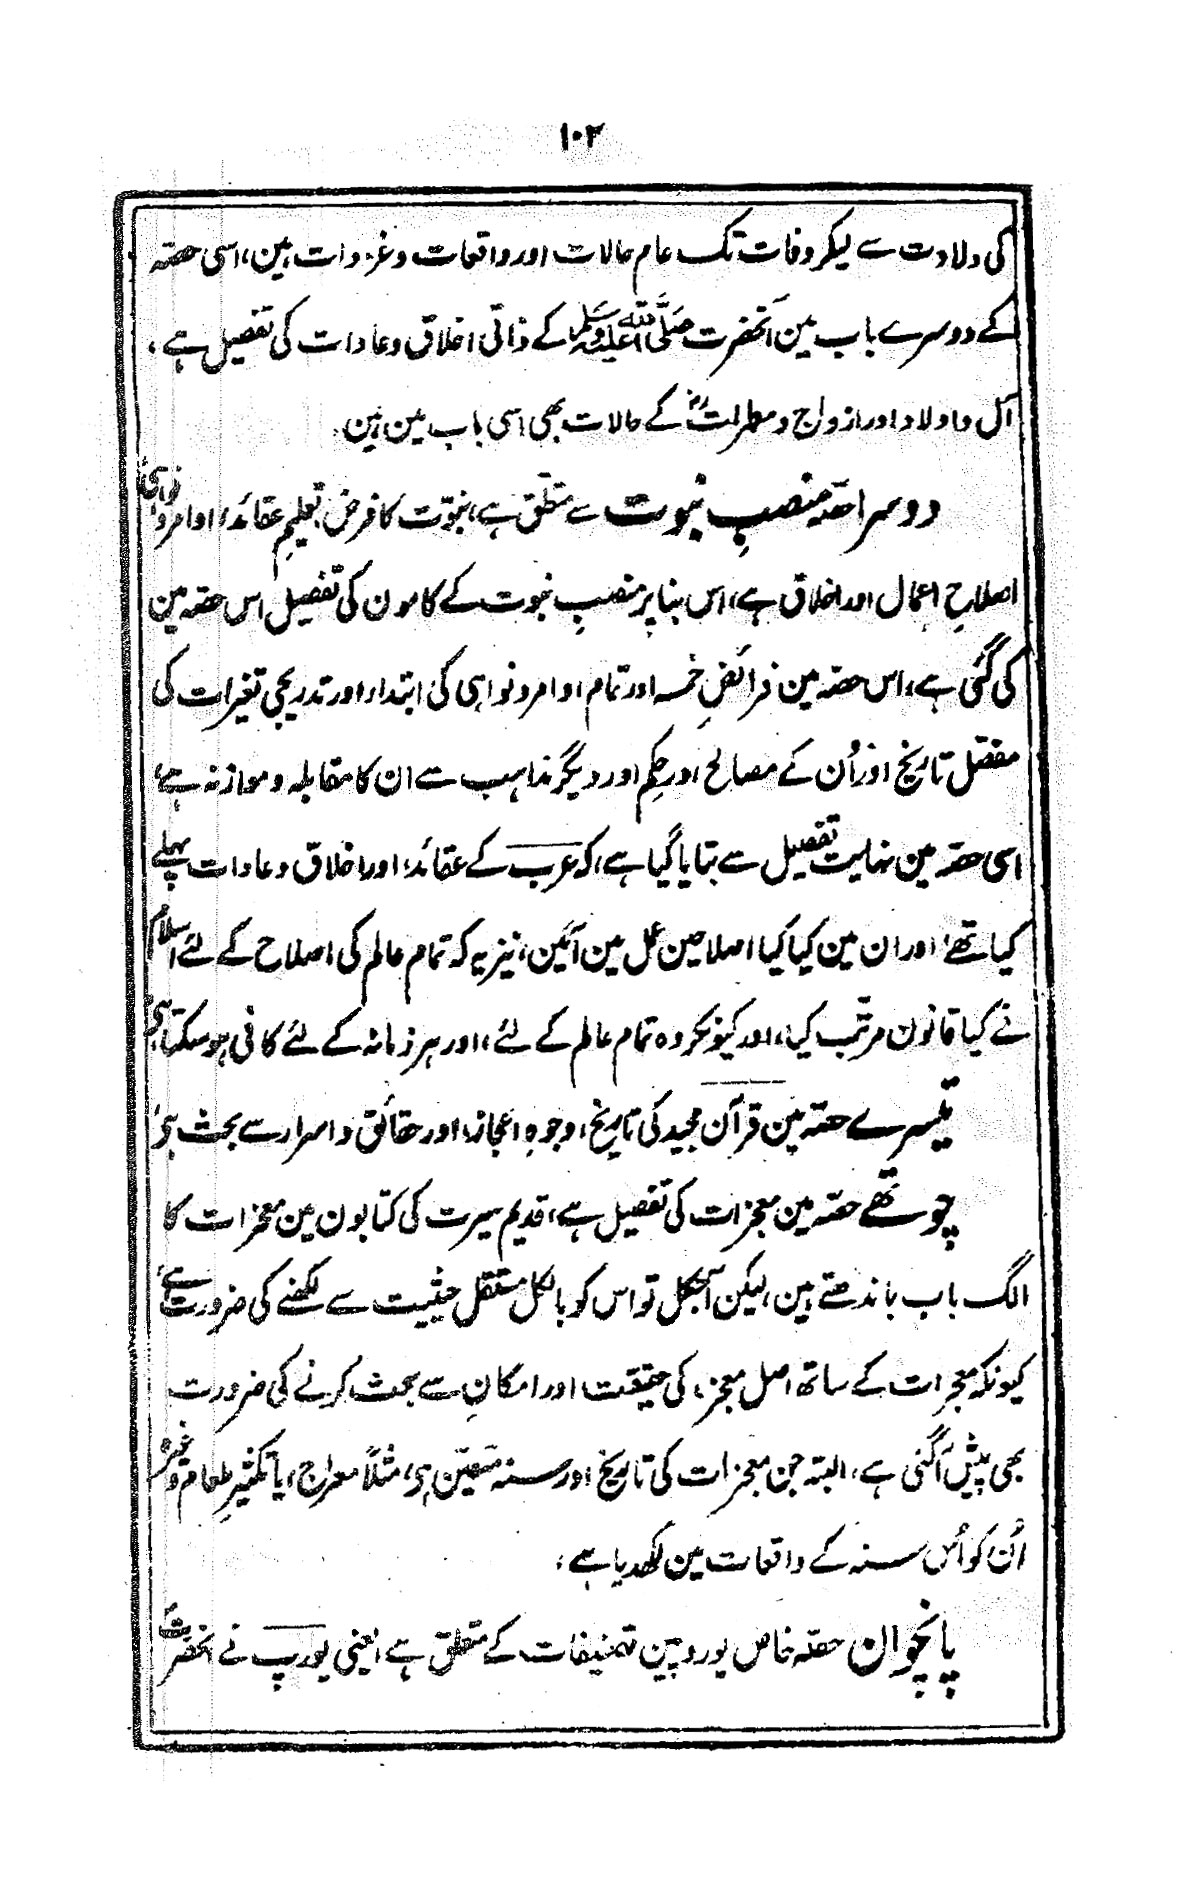 ۱۰۲
کی ولادت سے لیکر وفات تک عام حالات اور واقعات و غزوات ہین، اسی حصّہ
کے دوسرے باب مین آنحضرت صلّی اللہ علیہ وسلّم کے ذاتی اخلاق و عادات کی تفصیل ہے،
آل و اولاد اور ازواج مطہرات کے حالات بھی اسی باب مین ہین۔
دوسرا حصّہ منصبِ نبوت سے متعلق ہے، نبوّت کا فرض تعلیمِ عقائد، اوامر و نواہی
اصلاحِ اعمال اور اخلاق ہے، اس بنا پر منصبِ نبوت کے کامون کی تفصیل اس حصّہ مین
کی گئی ہے، اس حصّہ مین فرائضِ خمسہ اور تمام اوامر و نواہی کی ابتداء اور تدریجی تغیرات کی
مفصّل تاریخ اور اُن کے مصالح اور حِکم اور دیگر مذاہب سے ان کا مقابلہ و موازنہ ہے،
اسی حصّہ مین نہایت تفصیل سے بتایا گیا ہے، کہ عرب کے عقائد، اور اخلاق و عادات پہلے
کیا تھے، اور ان مین کیا کیا اصلاحین عمل مین آئین، نیز یہ کہ تمام عالم کی اصلاح کے لئے اسلام
نے کیا قانون مرتّب کیا، اور کیونکر وہ تمام عالم کے لئے، اور ہر زمانہ کے لئے کافی ہو سکتا ہی،
تیسرے حصّہ مین قرآن مجید کی تاریخ، وجوہِ اعجاز، اور حقائق و اسرار سے بحث ہی،
چوتھے حصّہ مین معجزات کی تفصیل ہے، قدیم سیرت کی کتابون مین معجزات کا
الگ باب باندھتے ہین، لیکن آجکل تو اس کو بالکل مستقل حیثیت سے لکھنے کی ضرورت ہے،
کیونکہ معجزات کے ساتھ اصل معجزہ کی حقیقت اور امکان سے بحث کرنے کی ضرورت
بھی پیش آگئی ہے، البتہ جن معجزات کی تاریخ اور سنہ متعیّن ہی، مثلاً معراج، یا تکثیرِ طعام وغیرہ
اُن کو اُس سنہ کے واقعات مین لکھدیا ہے،
پانچوان حصّہ خاص یوروپین تصنیفات کے متعلق ہے یعنی یورپ نے آنحضرت